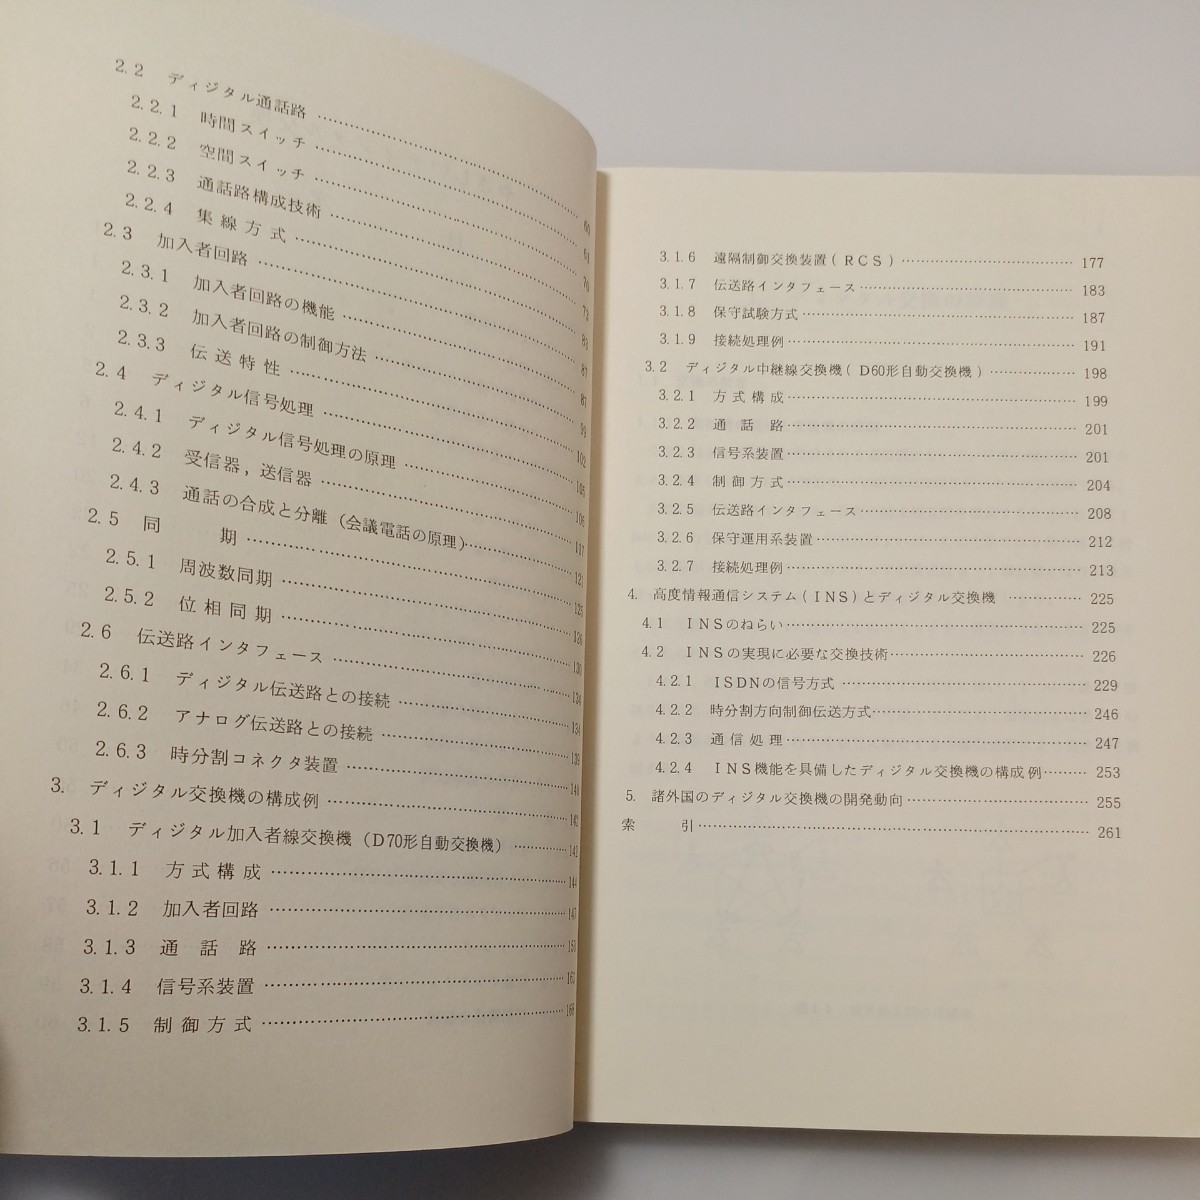 2.2 ディジタル通話路 …… 60
2.2.1 時間スイッチ …… 61
2.2.2 空間スイッチ …… 70
2.2.3 通話路構成技術 …… 73
2.2.4 集線方式 …… 83
2.3 加入者回路 …… 87
2.3.1 加入者回路の機能 …… 87
2.3.2 加入者回路の制御方法 …… 99
2.3.3 伝送特性 …… 102
2.4 ディジタル信号処理 …… 105
2.4.1 ディジタル信号処理の原理 …… 106
2.4.2 受信器,送信器 …… 117
2.4.3 通話の合成と分離(会議電話の原理) …… 121
2.5 同期 …… 125
2.5.1 周波数同期 …… 126
2.5.2 位相同期 …… 130
2.6 伝送路インタフェース …… 134
2.6.1 ディジタル伝送路との接続 …… 134
2.6.2 アナログ伝送路との接続 …… 139
2.6.3 時分割コネクタ装置 …… 140
3. ディジタル交換機の構成例 …… 142
3.1 ディジタル加入者線交換機(D70形自動交換機) …… 142
3.1.1 方式構成 …… 144
3.1.2 加入者回路 …… 147
3.1.3 通話路 …… 153
3.1.4 信号系装置 …… 163
3.1.5 制御方式 …… 168
3.1.6 遠隔制御交換装置(RCS) …… 177
3.1.7 伝送路インタフェース …… 183
3.1.8 保守試験方式 …… 187
3.1.9 接続処理例 …… 191
3.2 ディジタル中継線交換機(D60形自動交換機) …… 198
3.2.1 方式構成 …… 199
3.2.2 通話路 …… 201
3.2.3 信号系装置 …… 201
3.2.4 制御方式 …… 204
3.2.5 伝送路インタフェース …… 208
3.2.6 保守運用系装置 …… 212
3.2.7 接続処理例 …… 213
4. 高度情報通信システム(INS)とディジタル交換機 …… 225
4.1 INSのねらい …… 225
4.2 INSの実現に必要な交換技術 …… 226
4.2.1 ISDNの信号方式 …… 229
4.2.2 時分割方向制御伝送方式 …… 246
4.2.3 通信処理 …… 247
4.2.4 INS機能を具備したディジタル交換機の構成例 …… 253
5. 諸外国のディジタル交換機の開発動向 …… 255
索引 …… 261